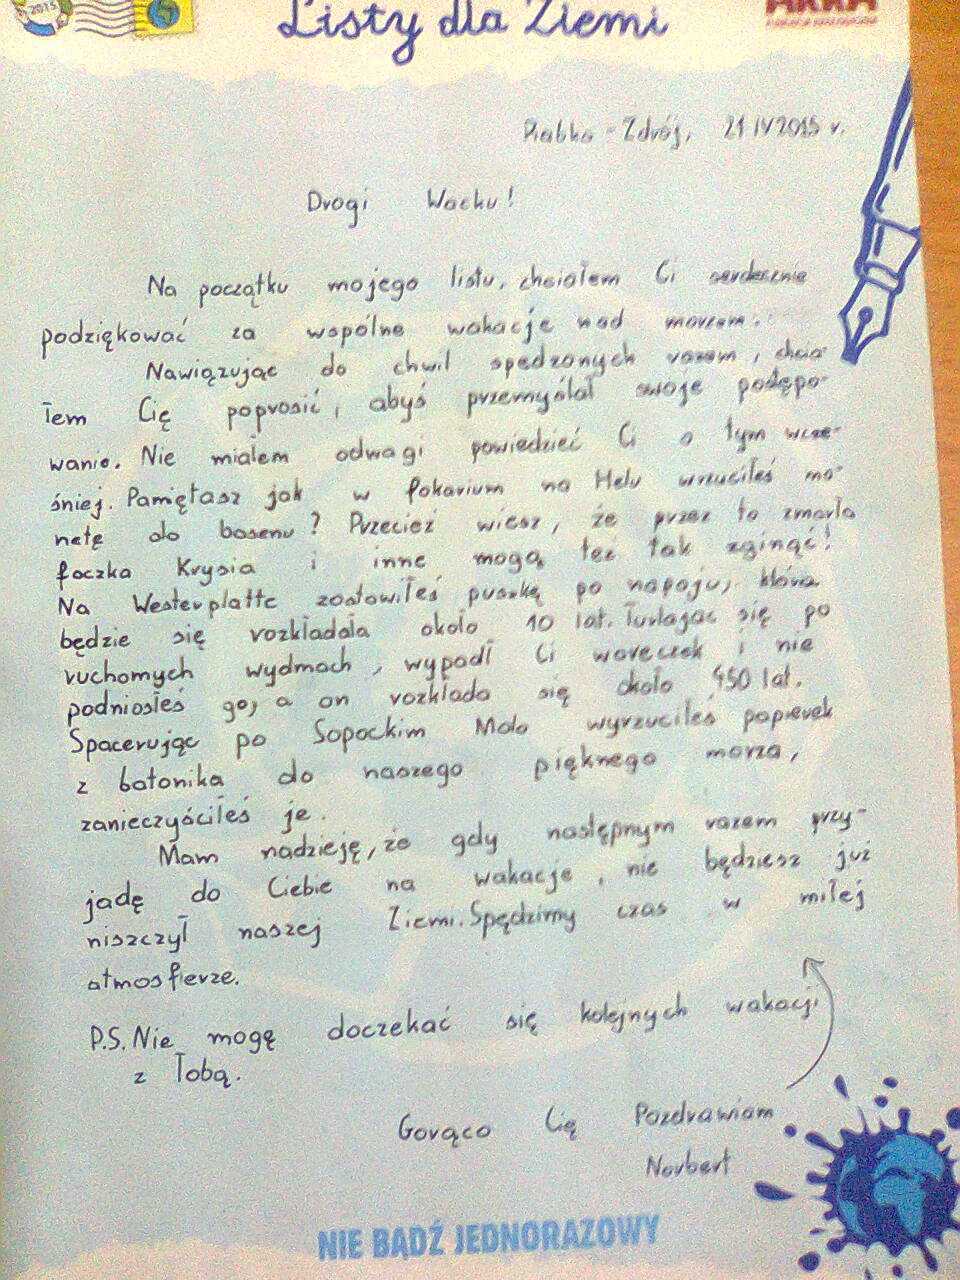 2015
Listy dla Ziemi
ARKA
Rabka-Zdrój, 21 IV 2015 r.
Drogi Wacku!
Na początku mojego listu, chciałem Ci serdecznie
podziękować za wspólne wakacje nad morzem.
Nawiązując do chwil spędzonych razem, chcia-
łem Cię poprosić, abyś przemyślał swoje postępo-
wanie. Nie miałem odwagi powiedzieć Ci o tym wcze-
śniej. Pamiętasz jak w fokarium na Helu wrzuciłeś mo-
netę do basenu? Przecież wiesz, że przez to zmarła
foczka Krysia i inne mogą też tak zginąć!
Na Westerplatte zostawiłeś puszkę po napoju, która
będzie się rozkładała około 10 lat. Turlając się po
ruchomych wydmach, wypadł Ci woreczek i nie
podniosłeś go, a on rozkłada się około 450 lat.
Spacerując po Sopockim Molo wyrzuciłeś papierek
z batonika do naszego pięknego morza,
zanieczyściłeś je.
Mam nadzieję, że gdy następnym razem przy-
jadę do Ciebie na wakacje, nie będziesz już
niszczył naszej Ziemi. Spędzimy czas w miłej
atmosfierze.
P.S. Nie mogę doczekać się kolejnych wakacji
z Tobą.
Gorąco Cię Pozdrawiam
Norbert
NIE BĄDŹ JEDNORAZOWY